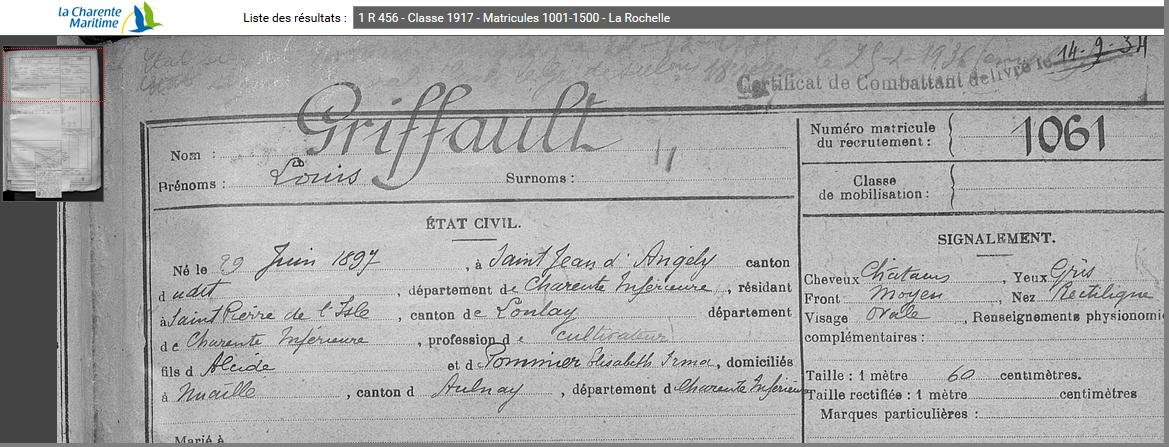 la Charente
Maritime
Liste des résultats : 1 R 456 - Classe 1917 - Matricules 1001-1500 - La Rochelle
14-9-34
Certificat de Combattant délivré le
Nom : Griffault
Prénoms : Louis Surnoms :
Numéro matricule
du recrutement : 1061
Classe
de mobilisation :
ÉTAT CIVIL.
Né le 29 Juin 1897, à Saint Jean d'Angély canton
dudit, département de Charente Inférieure, résidant
à Saint Pierre de l'Isle, canton de Loulay département
de Charente Inférieure, profession de cultivateur
fils d Alcide et d Pommier Elisabeth Irma, domiciliés
à Nuaillé, canton d Aulnay, département d Charente Inférieure
Marié à
SIGNALEMENT.
Cheveux Châtains, Yeux Gris
Front Moyen, Nez Rectiligne
Visage Ovale, Renseignements physionomi
complémentaires :
Taille : 1 mètre 60 centimètres.
Taille rectifiée : 1 mètre centimètres
Marques particulières :